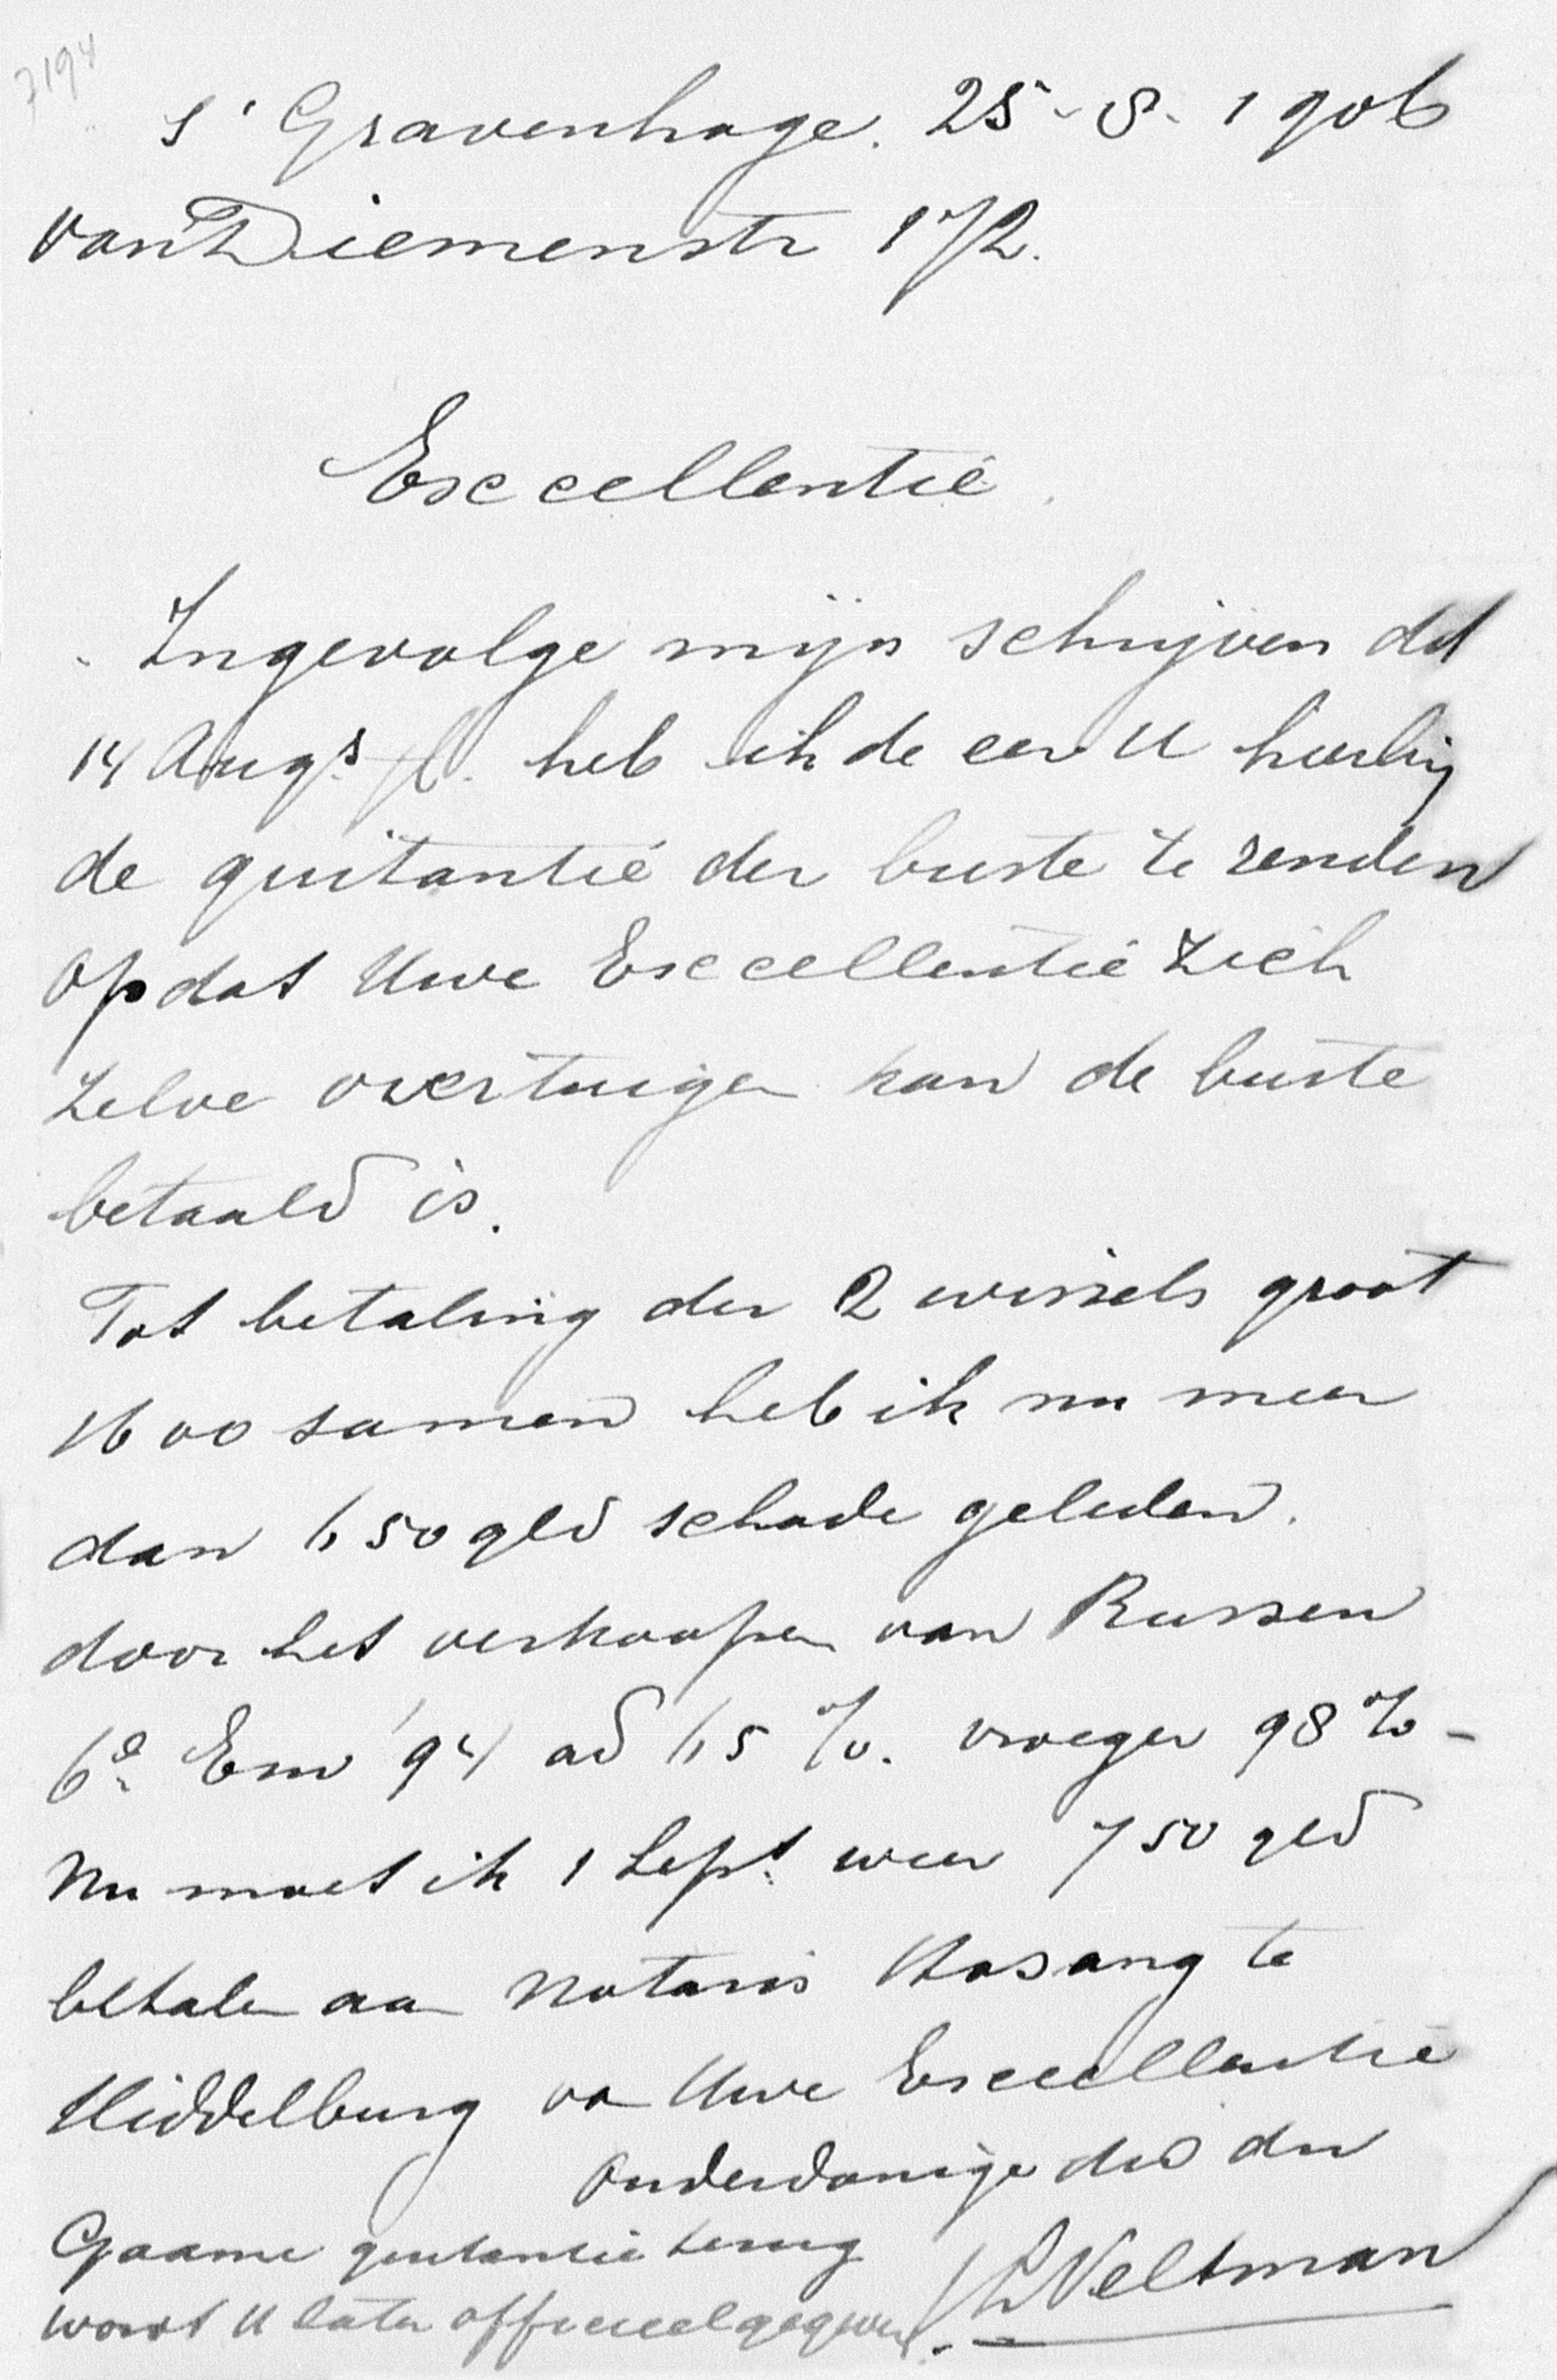 7194
s' Gravenhage. 25-8-1906
van Diemenstr 172.
Excellentië
Ingevolge mijn schrijven dd
14 Augs jl. heb ik de eer U hierbij
de quitantië der buste te zenden
opdat Uwe Excellentië zich
zelve overtuigen kan de buste
betaald is.
Tot betaling der 2 wissels groot
1600 samen heb ik nu meer
dan 650 gld schade geleden.
door het verkoopen van Russen
6e Em '94 ad 65 %. vroeger 98 % -
Nu moet ik 1 Sept weer 750 gld
betalen aan Notaris te
Middelburg van Uwe Excellentië
Onderdanige die dnr
Gaarne quitantië terug
wordt U later officieel gegeven.
Veltman